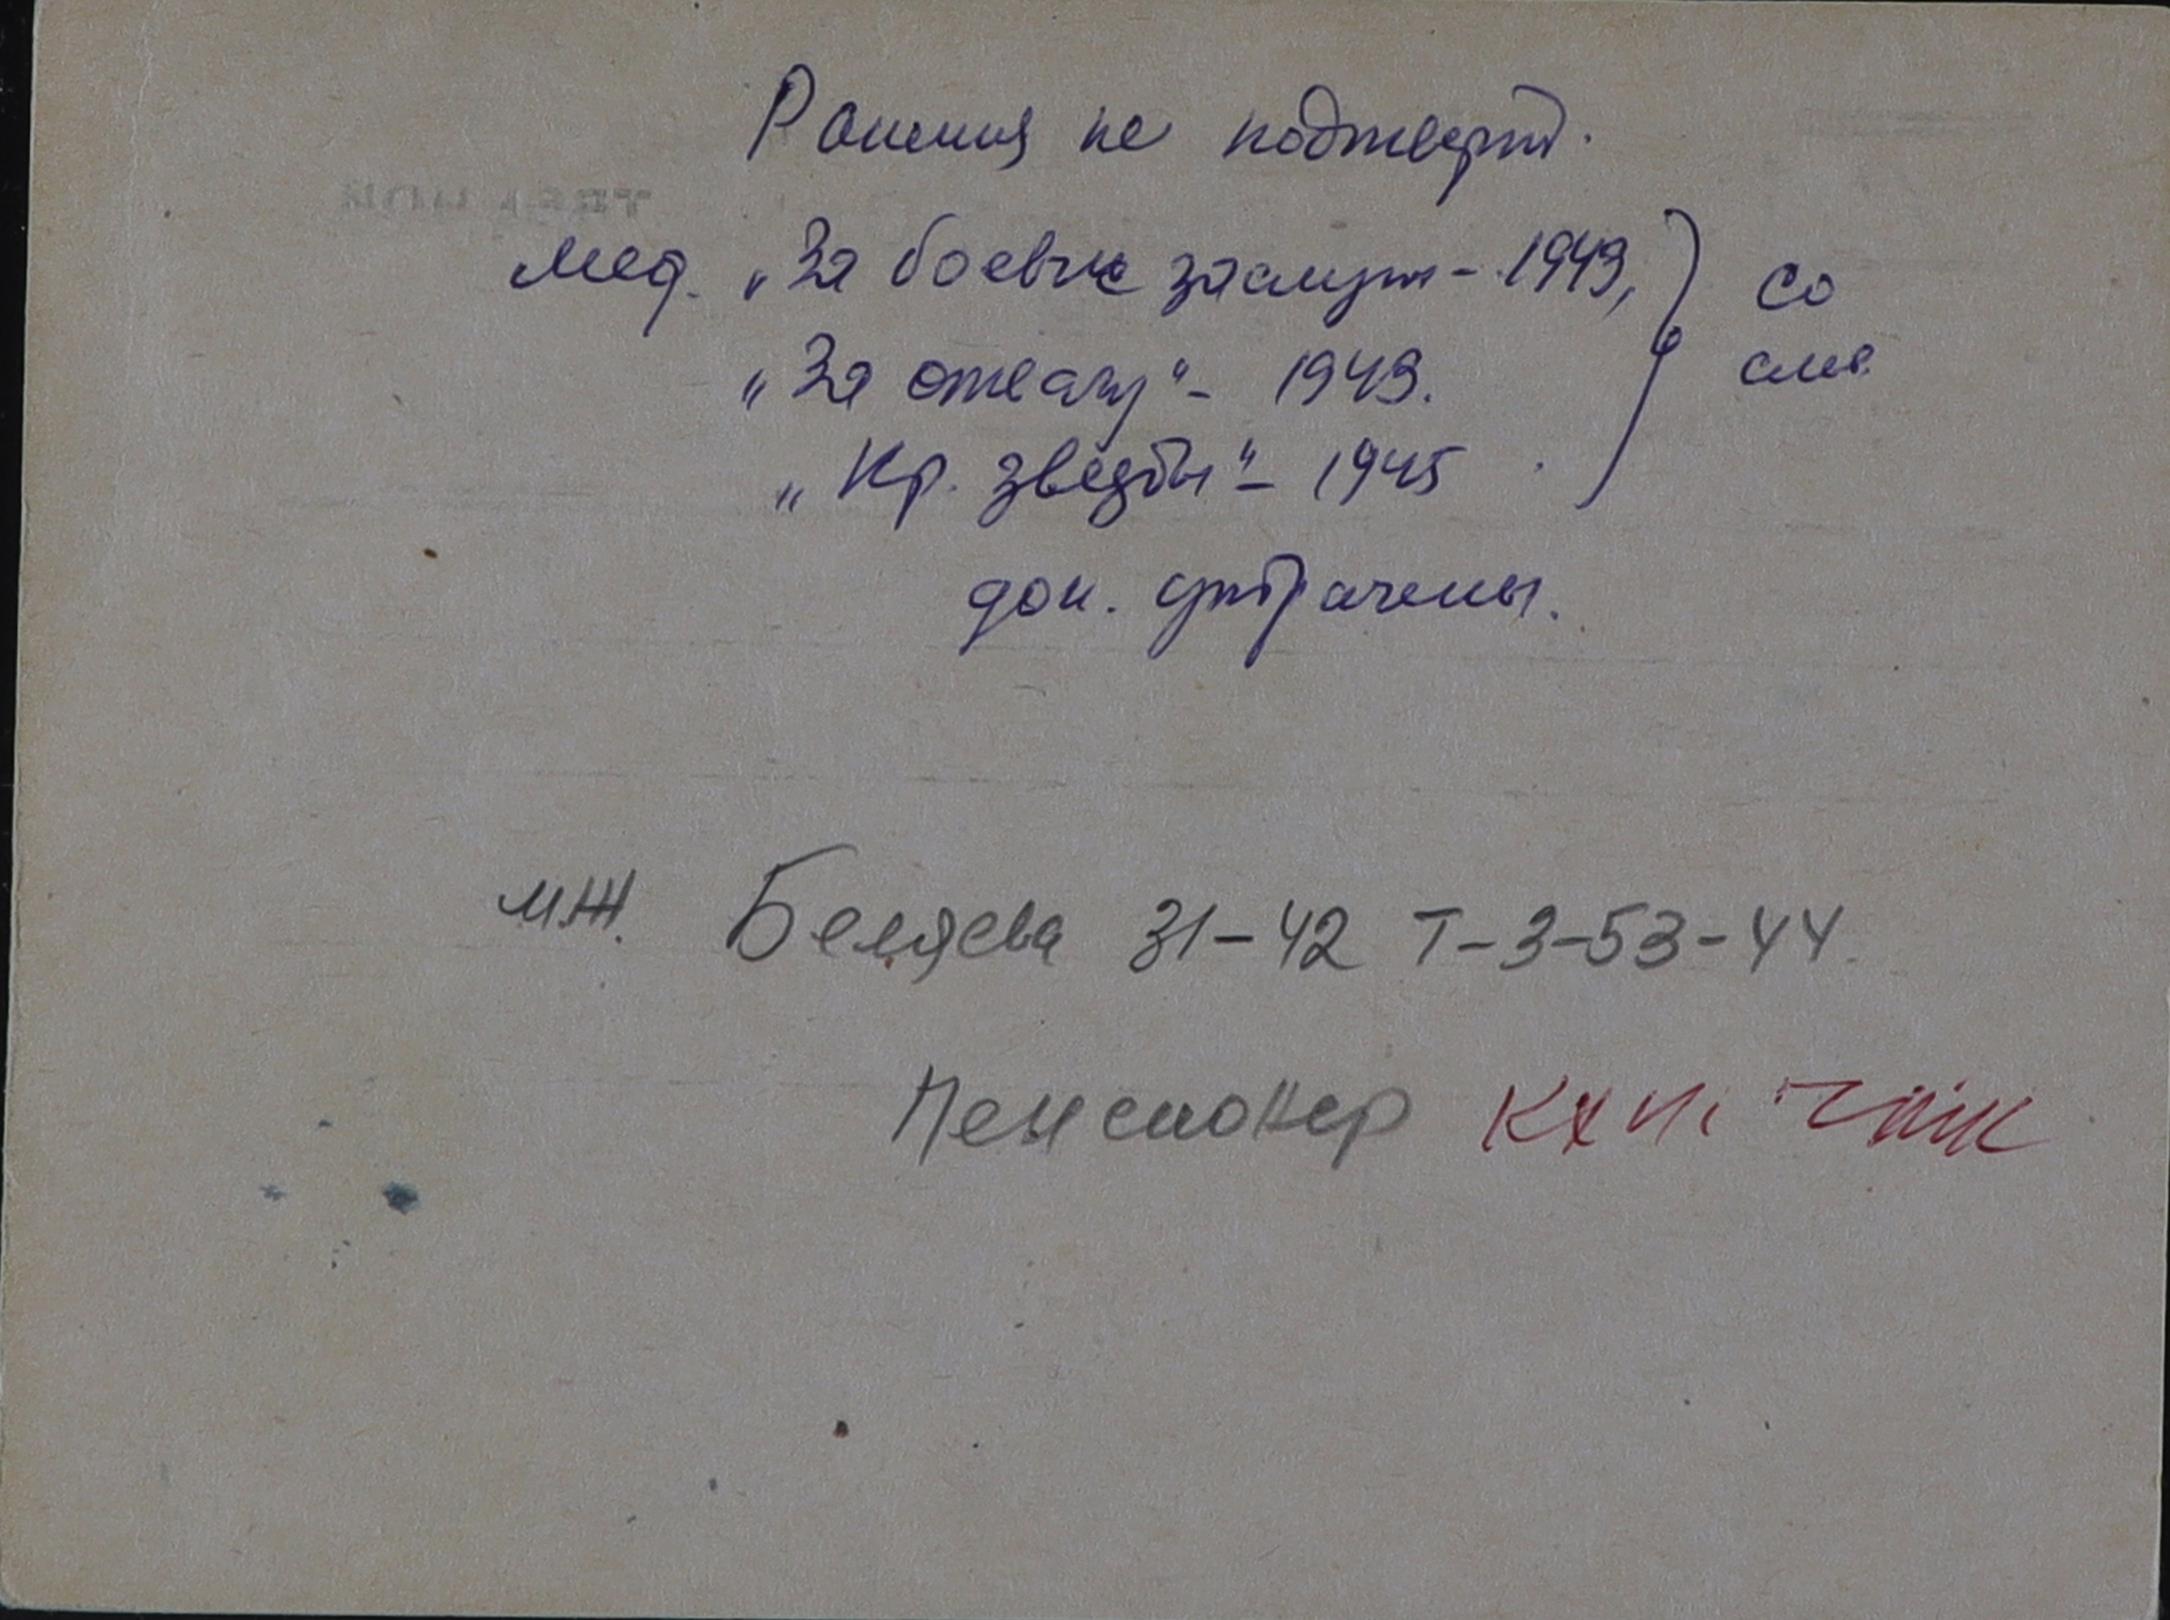 Ранения не подтверд.
мед. „За боевые заслуги - 1943, со
„За отвагу" - 1943. слов
„Кр. звезды" - 1945
док. утрачены.
МЖ. Беляева 31-42 Т-3-53-44.
Пенсионер